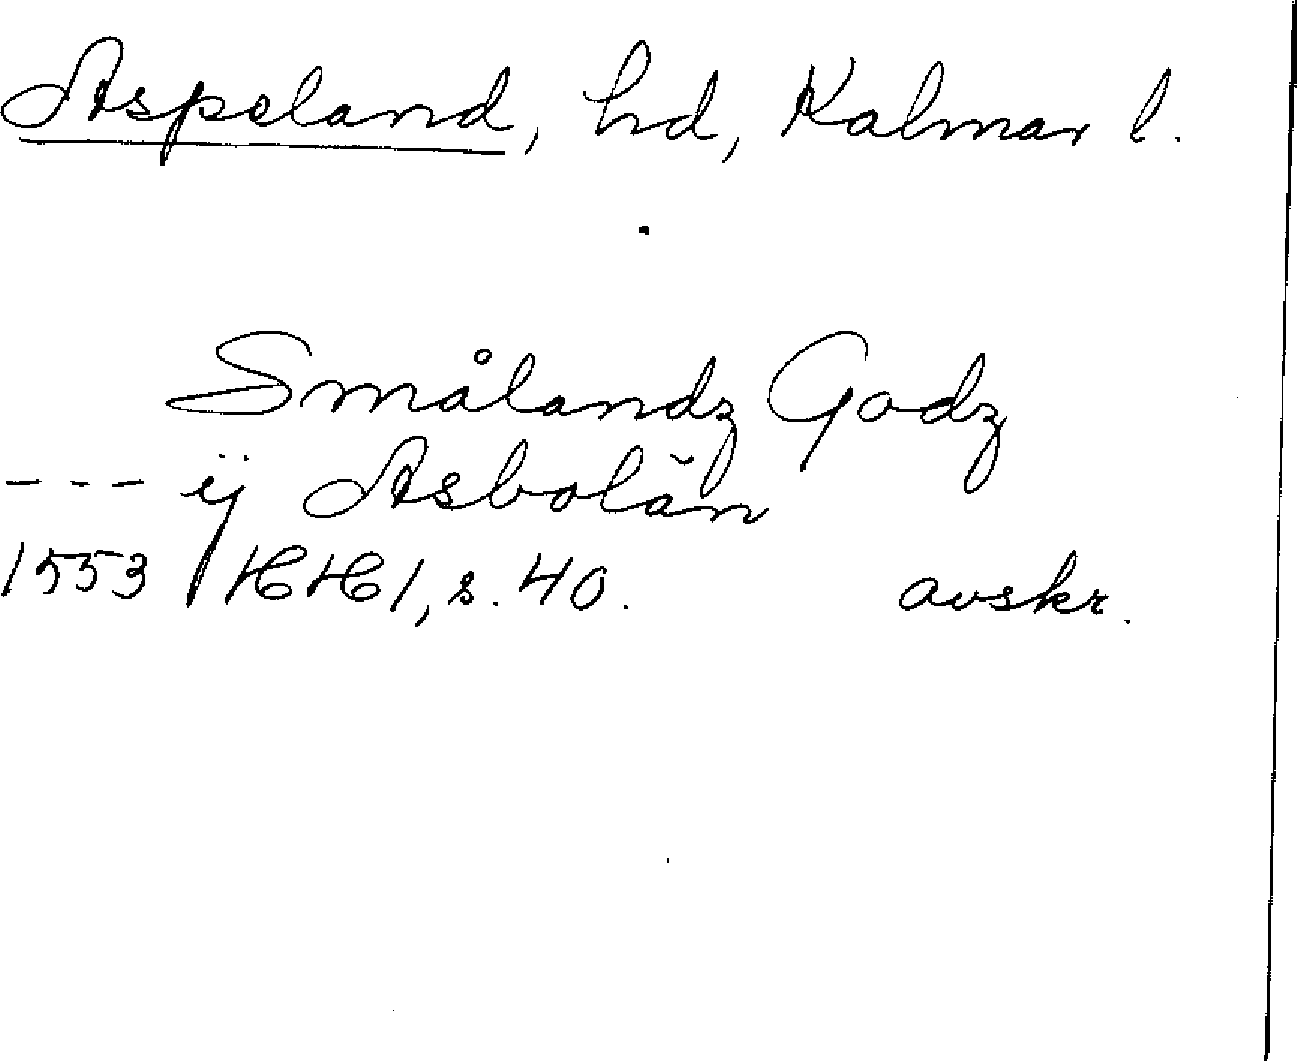 Aspeland, hd, Kalmar l.
Smålandz Godz
--- ij Asbolän
1553 HH 1, s. 40. avskr.